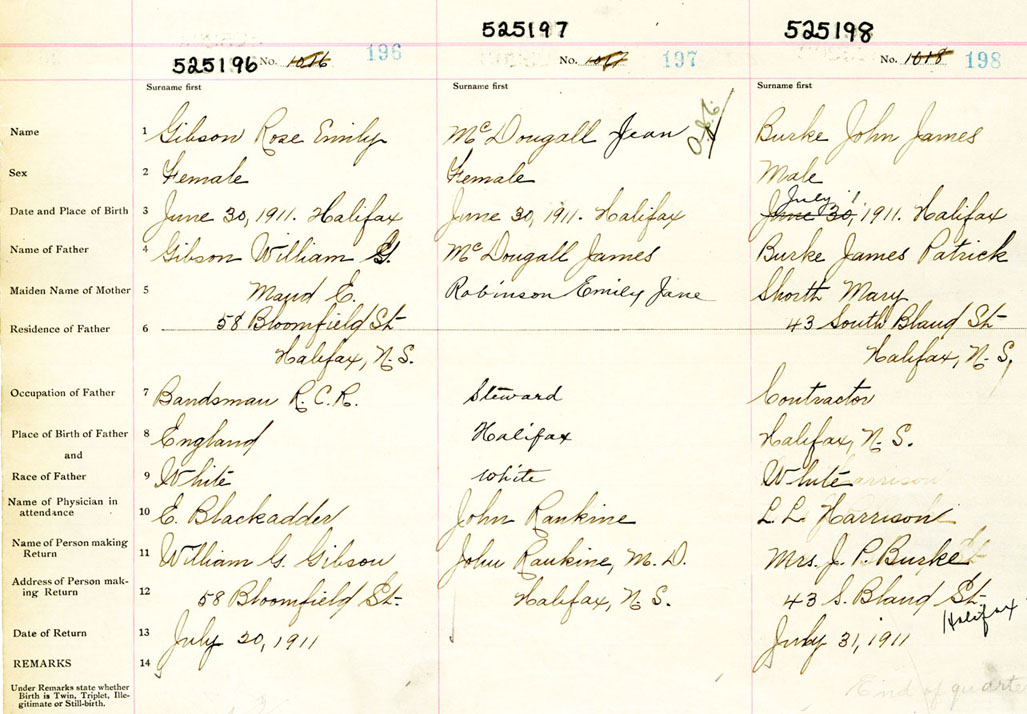 525197
525198
525196 No. 1076 196
No. 1077 197
No. 1078 198
Surname first
Surname first
Surname first
Name 1 Gibson Rose Emily
McDougall Jean
Burke John James
Sex 2 Female
Female
Male
July 1
Date and Place of Birth 3 June 30, 1911. Halifax
June 30, 1911. Halifax
June 30, 1911. Halifax
Name of Father 4 Gibson William G.
McDougall James
Burke James Patrick
Maiden Name of Mother 5 Maud E.
Robinson Emily Jane
Shorth Mary
Residence of Father 6 58 Bloomfield St
43 South Bland St
Halifax, N.S.
Halifax, N.S.
Occupation of Father 7 Bandsman R.C.R.
Steward
Contractor
Place of Birth of Father 8 England
Halifax
Halifax, N.S.
and
Race of Father 9 White
White
White
Name of Physician in
attendance 10 E. Blackadder
John Rankine
L.L. Harrison
Name of Person making
Return 11 William G. Gibson
John Rankine, M.D.
Mrs. J. P. Burke
Address of Person mak-
ing Return 12 58 Bloomfield St.
Halifax, N.S.
43 S. Bland St
Halifax
Date of Return 13 July 20, 1911
July 31, 1911
REMARKS 14
Under Remarks state whether
Birth is Twin, Triplet, Ille-
gitimate or Still-birth.
End of quarte